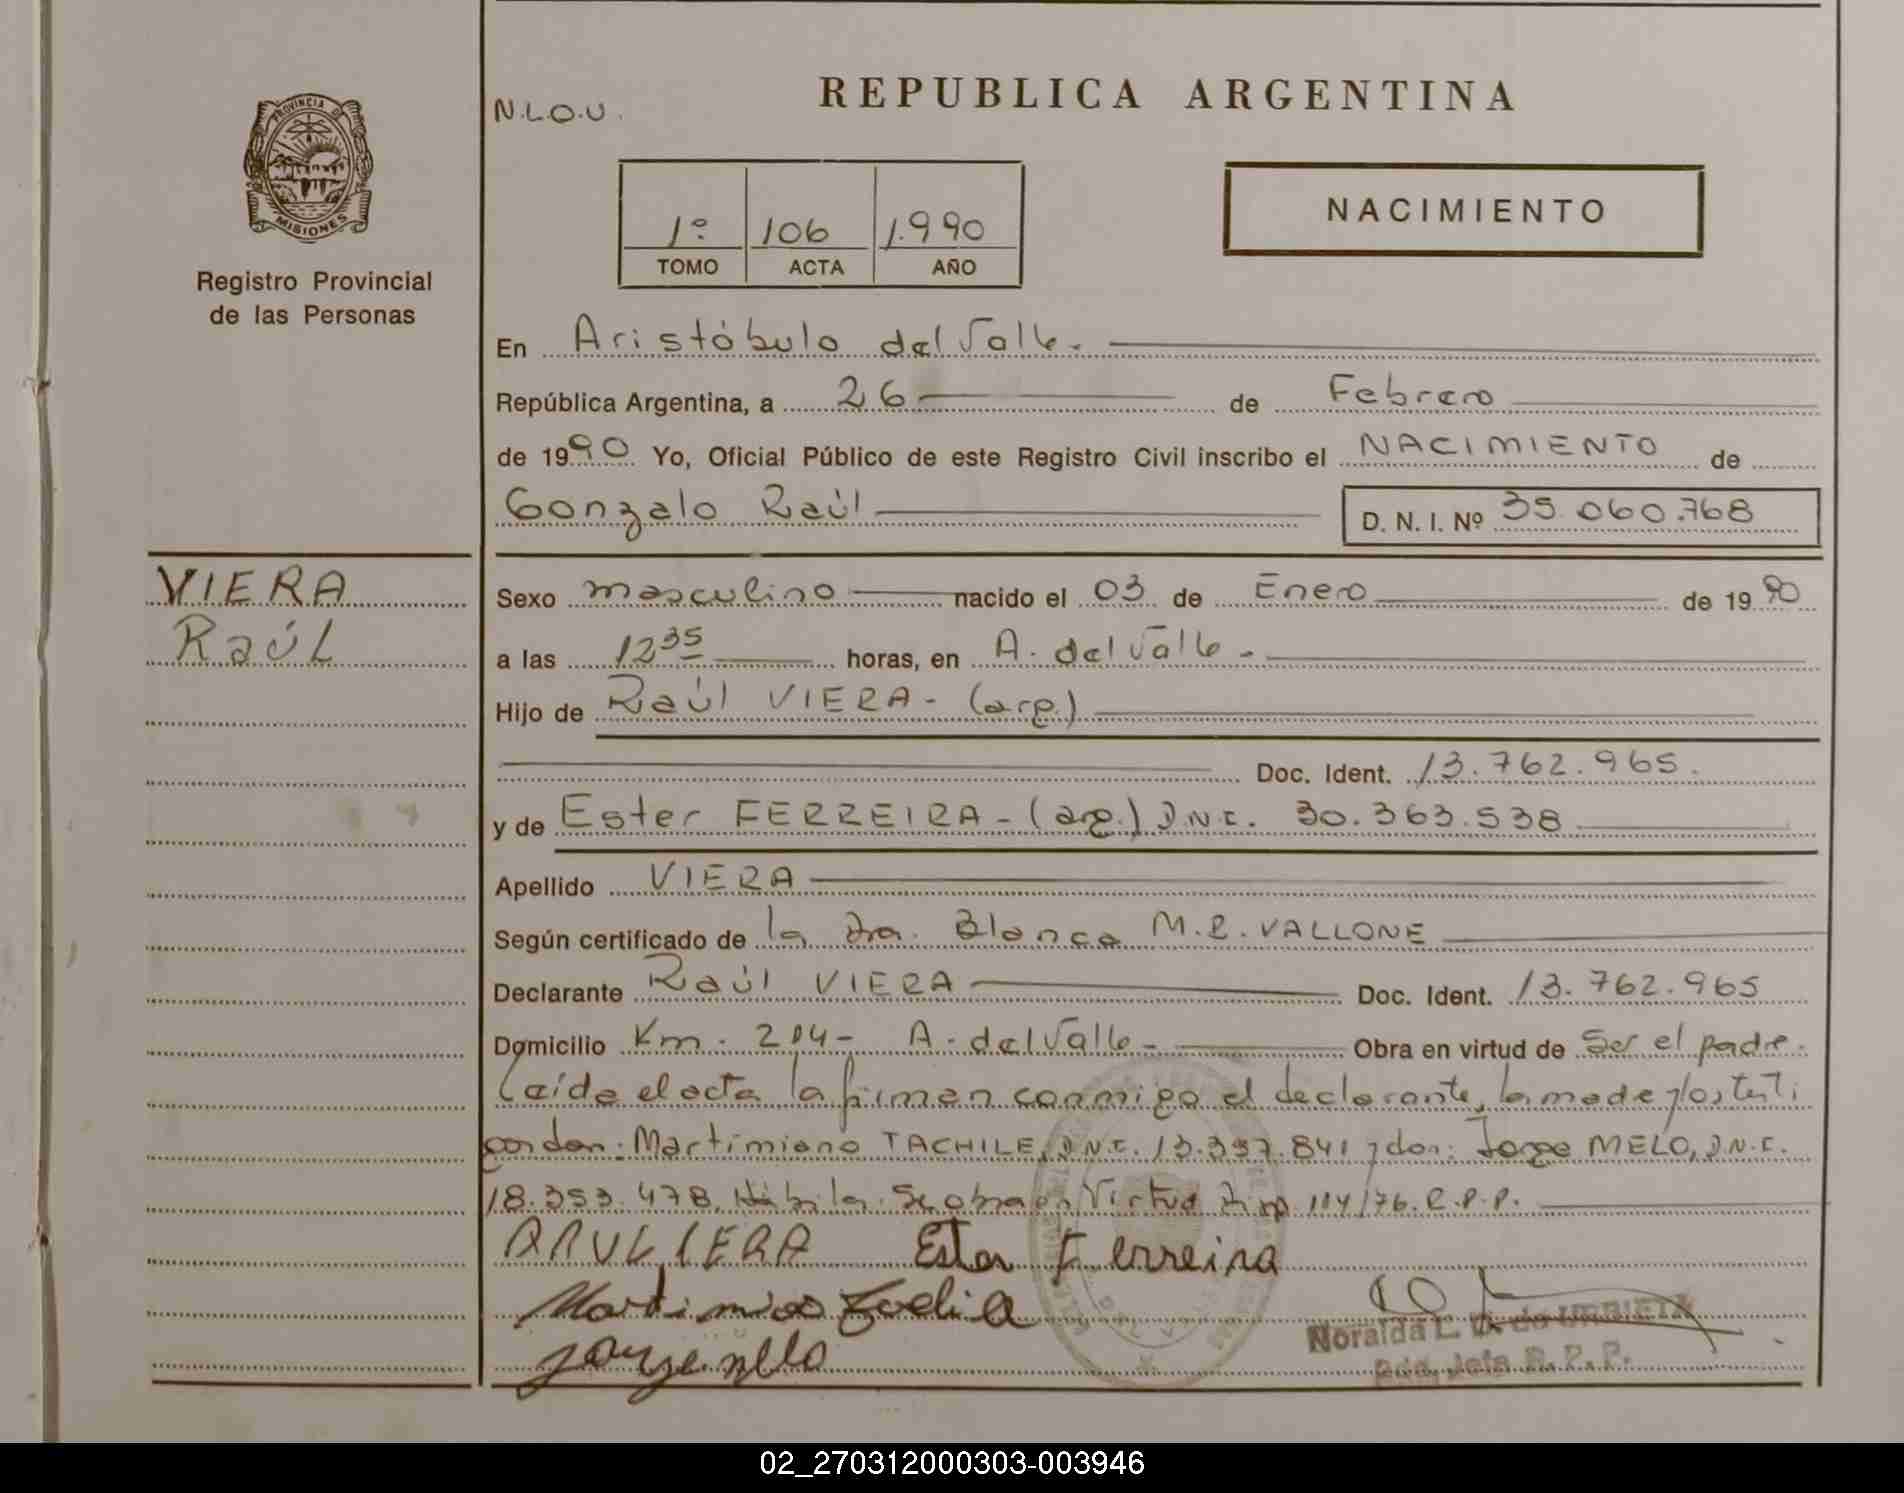 PROVINCIA DE
MISIONES
Registro Provincial
de las Personas
VIERA
Raúl
N.L.O.U.
REPUBLICA ARGENTINA
1º 106 1.990
TOMO ACTA AÑO
NACIMIENTO
En Aristóbulo del Valle.
República Argentina, a 26 de Febrero
de 1990 Yo, Oficial Público de este Registro Civil inscribo el NACIMIENTO de
Gonzalo Raúl D. N. I. Nº 35.060.768
Sexo masculino nacido el 03 de Enero de 1990
a las 12 35 horas, en A. del Valle -
Hijo de Raúl VIERA - (arg.)
Doc. Ident. 13.762.965.
y de Ester FERREIRA - (arg.) D.N.I. 30.363.538
Apellido VIERA
Según certificado de la Dra. Blanca M.R. VALLONE
Declarante Raúl VIERA Doc. Ident. 13.762.965
Domicilio Km. 204 - A. del Valle - Obra en virtud de Ser el padre.
Leída el acta la firman conmigo el declarante, la madre y los testi
gos don: Martimiano TACHILE, D.N.I. 13.397.841 y don: Jorge MELO, D.N.I.
18.353.478, Hábiles. Se obra en Virtud Disp. 114/76. R.P.P.
RAUL VIERA Ester Ferreira
Jorge Mello
Noralda L. D. de URBIETA
Jefa R. P. P.
02_270312000303-003946